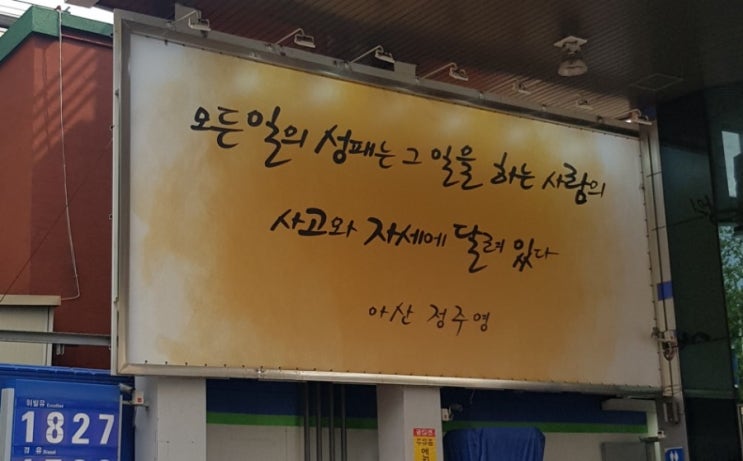 모든 일의 성패는 그 일을 하는 사람의
사고와 자세에 달려 있다
아산 정주영
휘발유
1827
경유 Diesel